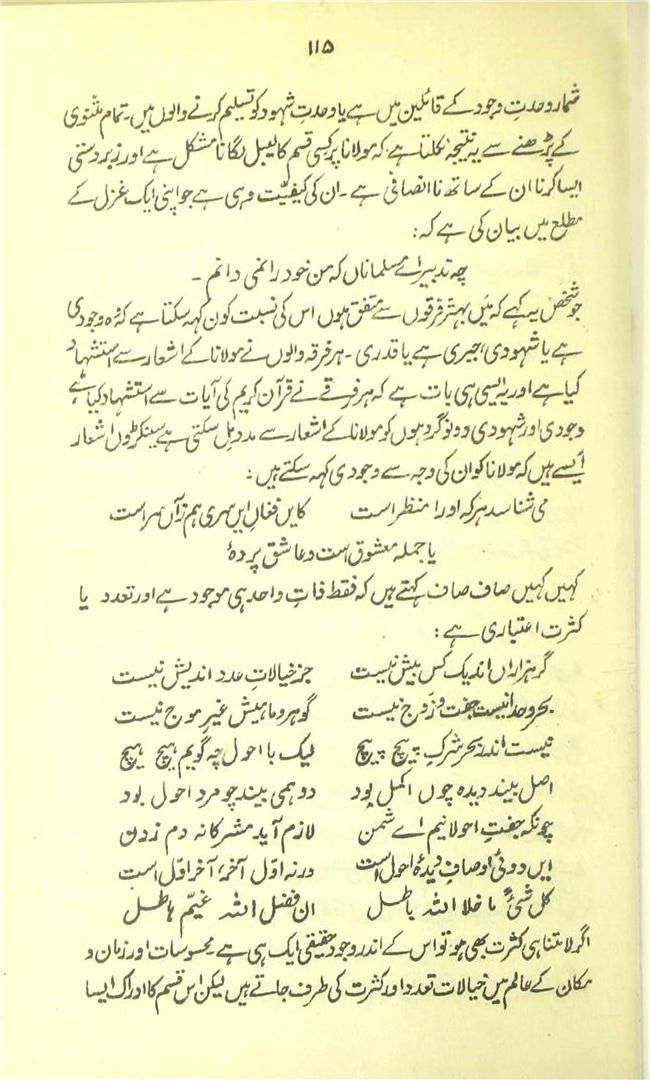 ۱۱۵
شمار وحدتِ وجود کے قائلین میں ہے یا وحدتِ شہود کو تسلیم کرنے والوں میں۔ تمام مثنوی
کے پڑھنے سے یہ نتیجہ نکلتا ہے کہ مولانا پر کسی قسم کا لیبل لگانا مشکل ہے اور زبردستی
ایسا کرنا ان کے ساتھ ناانصافی ہے۔ ان کی کیفیّت وہی ہے جو اپنی ایک غزل کے
مطلع میں بیان کی ہے کہ:
چہ تدبیر اے مسلماناں کہ من خود را نمی دانم ۔
جو شخص یہ کہے کہ میَں بہتّر فرقوں سے متفق ہوں اس کی نسبت کون کہہ سکتا ہے کہ وُہ وجودی
ہے یا شہودی، جبری ہے یا قدری۔ ہر فرقہ والوں نے مولانا کے اشعار سے استشہاد
کیا ہے اور یہ ایسی ہی بات ہے کہ ہر فرقے نے قرآن کریم کی آیات سے استشہاد کیا ہے
وجودی اور شہودی دونو گروہوں کو مولانا کے اشعار سے مدد مِل سکتی ہے سینکڑوں اشعار
اَیسے ہیں کہ مولانا کو ان کی وجہ سے وجودی کہہ سکتے ہیں:
می شناسد ہر کہ اورا منظر است کایں فغانِ ایں سری ہم زآں سر است
یا جملہ معشوق است و عاشق پردۂ
کہیں کہیں صاف صاف کہتے ہیں کہ فقط ذاتِ واحد ہی موجود ہے اور تعدد یا
کثرت اعتباری ہے:
گر ہزاراں اند یک کس بیش نیست جز خیالاتِ عدد اندیش نیست
بحر وحدانیست جفت و زَوج نیست گوہر و ماہیش غیرِ موج نیست
نیست اندر بحر شرکِ پیچ پیچ لیک با احول چہ گویم ہیچ ہیچ
اصل بیند دیدہ چوں اکمل بود دو ہمی بیند چو مرد احول بود
چونکہ جفتِ احولانیم اے شمن لازم آید مشرکانہ دم زدن
ایں دوئی اوصافِ دیدۂ احول است ورنہ اوّل آخر، آخر اوّل است
کل شئیٍ ما خلا اللہ باطل ان فضل اللہ غیم ہاطل
اگر لامتناہی کثرت بھی ہو تو اس کے اندر وجود حقیقی ایک ہی ہے۔ محسوسات اور زمان و
مکان کے عالم میں خیالات تعدد اور کثرت کی طرف جاتے ہیں لیکن اس قسم کا ادراک ایسا